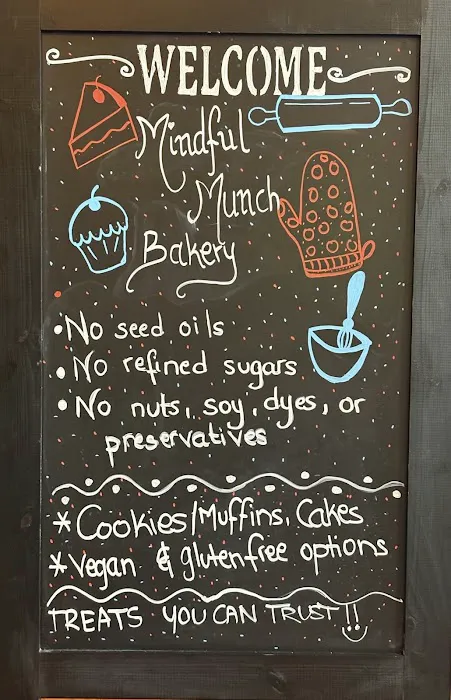 WELCOME
Mindful
Munch
Bakery
•No seed oils
•No refined sugars
•No nuts, soy, dyes, or
preservatives
*Cookies/Muffins, Cakes
*Vegan & glutenfree options
TREATS YOU CAN TRUST!!